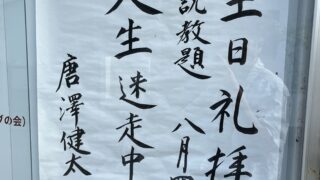 主日礼拝
説教題 八月四
人生迷走中
唐澤健太
ブの会)